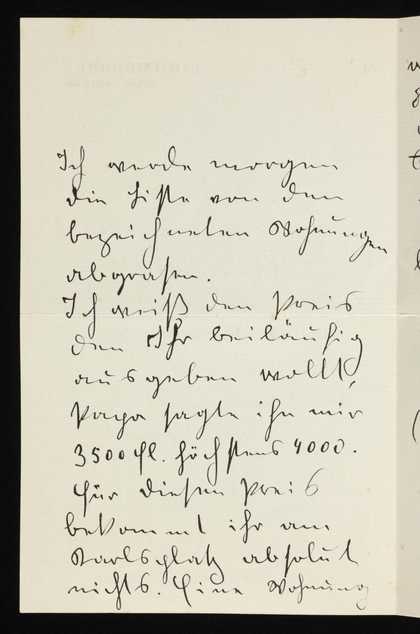 Ich werde morgen
die Liste von den
bezeichneten Wohnungen
abgrasen.
Ich weiß den Preis
den Ihr beiläufig
ausgeben wollt,
Papa sagte ihn mir
3500 fl. höchstens 4000.
Für diesen Preis
bekommt ihr am
Karlsplatz absolut
nichts. Eine Wohnung